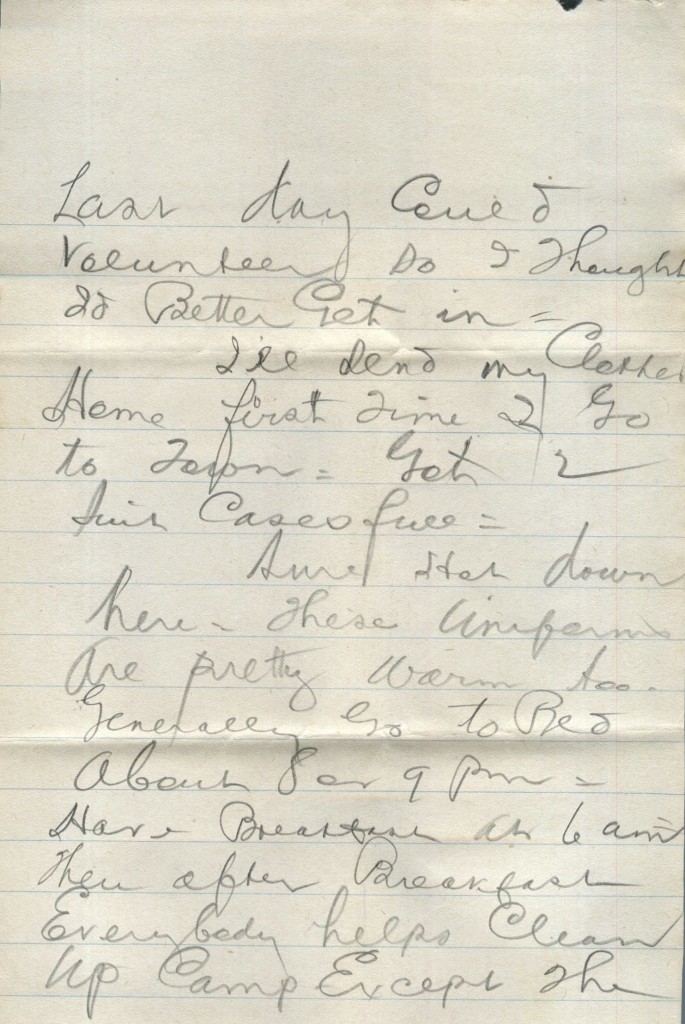 Last day Could
Volunteer So I Thought
Id Better Get in =
I'll Send my Clothes
Home first Time I Go
to Town = Got 2
Suit Cases full =
Sure Hot down
here = These Uniforms
Are pretty Warm too.
Generally Go to Bed
About 8 or 9 Pm =
Have Breakfast At 6 am =
Then after Breakfast
Everybody helps Clean
Up Camp Except The